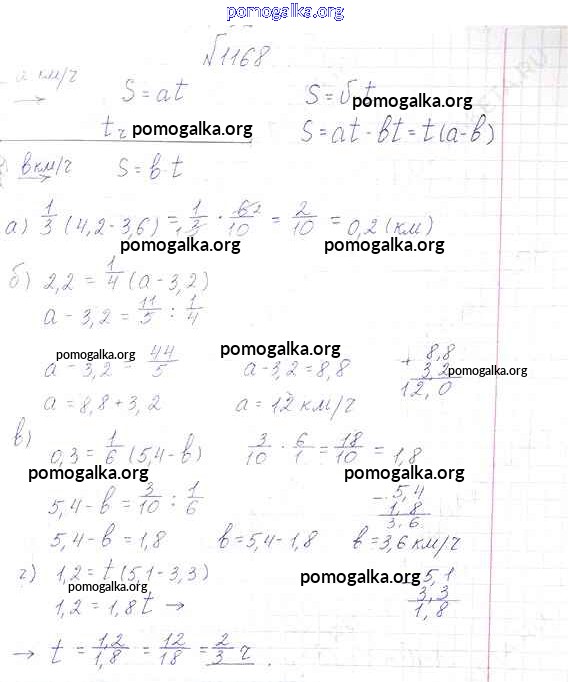 pomogalka.org
№1168
a км/ч
→ S = at S = t
pomogalka.org
t ч pomogalka.org S = at - bt = t(a-b)
b км/ч S = b·t
а) 1/3 (4,2-3,6) = 1/3 · 6/10 = 2/10 = 0,2 (км)
pomogalka.org pomogalka.org
б) 2,2 = 1/4 (a - 3,2)
a - 3,2 = 11/5 : 1/4
pomogalka.org pomogalka.org
a - 3,2 = 44/5 a - 3,2 = 8,8 + 8,8
3,2 pomogalka.org
12,0
a = 8,8 + 3,2 a = 12 км/ч
в) 0,3 = 1/6 (5,4 - b) 3/10 · 6/1 = 18/10 = 1,8
pomogalka.org pomogalka.org
5,4 - b = 3/10 : 1/6 - 5,4
1,8
3,6
5,4 - b = 1,8 b = 5,4 - 1,8 b = 3,6 км/ч
г) 1,2 = t(5,1 - 3,3) 5,1
pomogalka.org pomogalka.org
3,3
1,2 = 1,8t → 1,8
→ t = 1,2/1,8 = 12/18 = 2/3 ч.